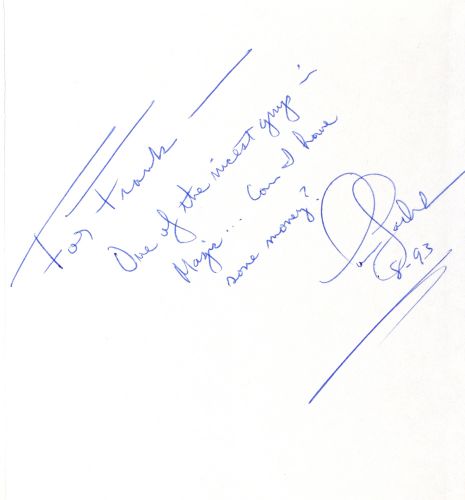 For Frank —
One of the nicest guys in
Magic... Can I have
some money?
8-93